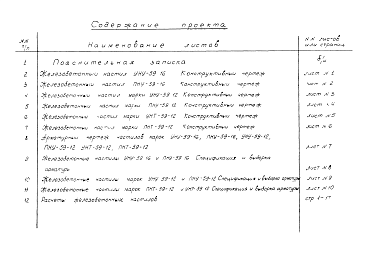 Содержание проекта
№№ п/п
Наименование листов
№№ листов или страниц
1 Пояснительная записка б/н
2 Железобетонный настил УНУ-59-16 Конструктивный чертеж лист № 1
3 Железобетонный настил ПНУ-59-16 Конструктивный чертеж лист № 2
4 Железобетонный настил марки УНУ-59-12 Конструктивный чертеж лист № 3
5 Железобетонный настил марки ПНУ-59-12 Конструктивный чертеж лист № 4
6 Железобетонный настил марки УНТ-59-12 Конструктивный чертеж лист № 5
7 Железобетонный настил марки ПНТ-59-12 Конструктивный чертеж лист № 6
8 Арматурный чертеж настилов марок УНУ-59-16, ПНУ-59-16, УНУ-59-12,
ПНУ-59-12, УНТ-59-12, ПНТ-59-12 лист № 7
9 Железобетонные настилы УНУ-59-16 и ПНУ-59-16 Спецификация и выборка
арматуры лист № 8
10 Железобетонные настилы марок УНУ-59-12 и ПНУ-59-12 Спецификация и выборка арматуры лист № 9
11 Железобетонные настилы марок ПНТ-59-12 и УНТ-59-12 Спецификация и выборка арматуры лист № 10
12 Расчеты железобетонных настилов стр 1-